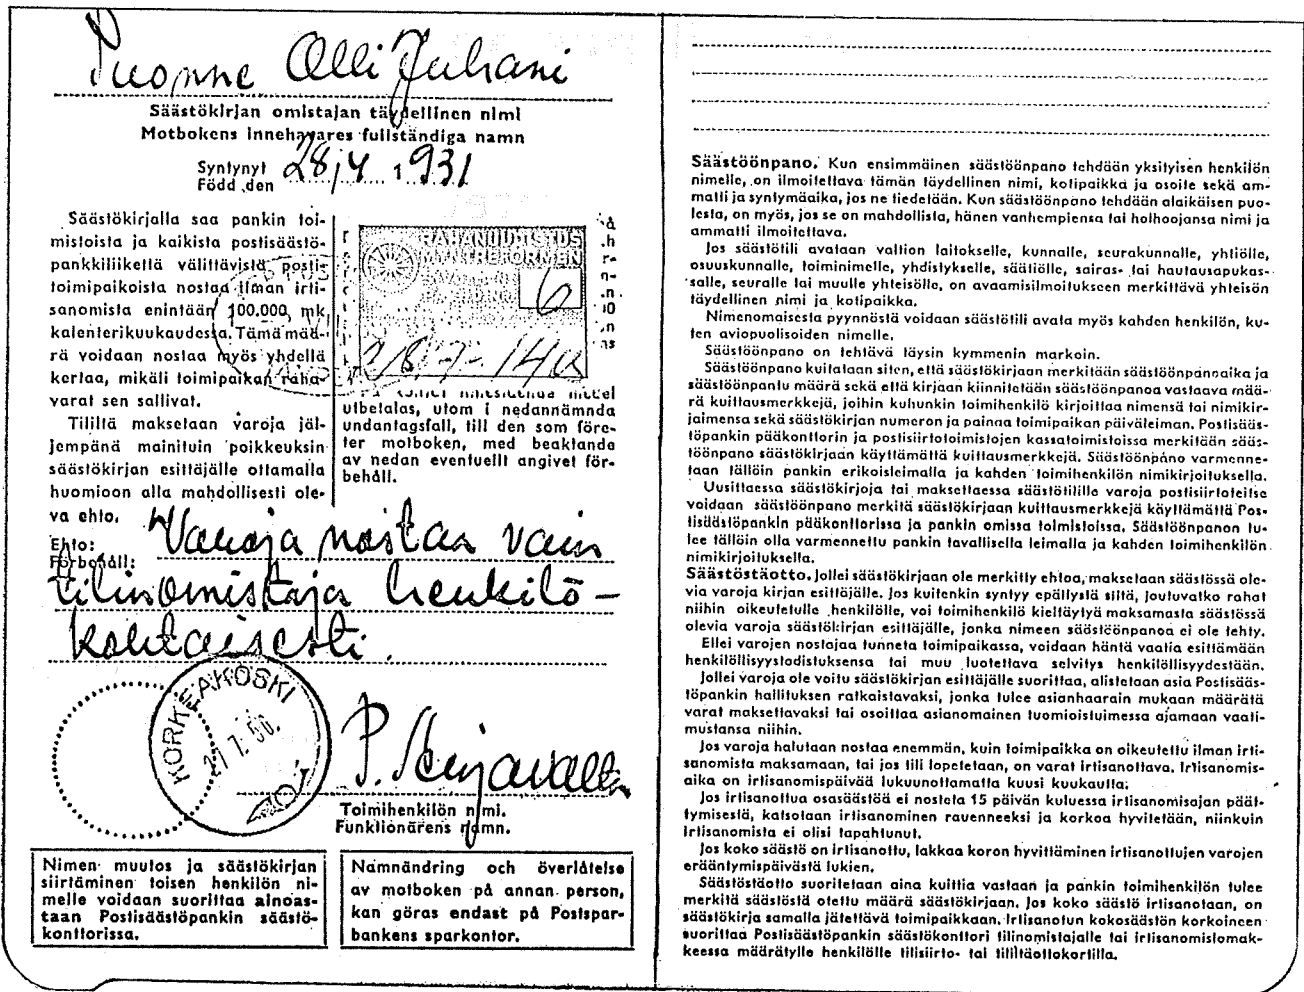 Vuonne Olli Juhani
Säästökirjan omistajan täydellinen nimi
Motbokens innehavares fullständiga namn
Syntynyt 28/4 1931
Född den
Säästökirjalla saa pankin toi-
mistoista ja kaikista postisäästö-
pankkiliikettä välittävistä posti-
toimipaikoista nostaa ilman irti-
sanomista enintään 100.000, mk
kalenterikuukaudessa. Tämä mää-
rä voidaan nostaa myös yhdellä
kertaa, mikäli toimipaikan raha-
varat sen sallivat.
Tililtä maksetaan varoja jäl-
jempänä mainituin poikkeuksin
säästökirjan esittäjälle ottamalla
huomioon alla mahdollisesti ole-
va ehto.
RAHANUUDISTUS
MYNTREFORMEN
6
28.7.-
utbetalas, utom i nedannämnda
undantagsfall, till den som före-
ter motboken, med beaktande
av nedan eventuellt angivet för-
behåll.
Ehto: Varoja nostaa vain
Förbehåll:
tilinomistaja henkilö-
kohtaisesti.
KORKEAKOSKI
27.7.56.
P.
Toimihenkilön nimi.
Funktionärens namn.
Nimen muutos ja säästökirjan
siirtäminen toisen henkilön ni-
melle voidaan suorittaa ainoas-
taan Postisäästöpankin säästö-
konttorissa.
Namnändring och överlåtelse
av motboken på annan person,
kan göras endast på Postspar-
bankens sparkontor.
Säästöönpano. Kun ensimmäinen säästöönpano tehdään yksityisen henkilön
nimelle, on ilmoitettava tämän täydellinen nimi, kotipaikka ja osoite sekä am-
matti ja syntymäaika, jos ne tiedetään. Kun säästöönpano tehdään alaikäisen puo-
lesta, on myös, jos se on mahdollista, hänen vanhempiensa tai holhoojansa nimi ja
ammatti ilmoitettava.
Jos säästötili avataan valtion laitokselle, kunnalle, seurakunnalle, yhtiölle,
osuuskunnalle, toiminimelle, yhdistykselle, säätiölle, sairas- tai hautausapukas-
salle, seuralle tai muulle yhteisölle, on avaamisilmoitukseen merkittävä yhteisön
täydellinen nimi ja kotipaikka.
Nimenomaisesta pyynnöstä voidaan säästötili avata myös kahden henkilön, ku-
ten aviopuolisoiden nimelle.
Säästöönpano on tehtävä täysin kymmenin markoin.
Säästöönpano kuitataan siten, että säästökirjaan merkitään säästöönpanoaika ja
säästöönpantu määrä sekä että kirjaan kiinnitetään säästöönpanoa vastaava mää-
rä kuittausmerkkejä, joihin kuhunkin toimihenkilö kirjoittaa nimensä tai nimikir-
jaimensa sekä säästökirjan numeron ja painaa toimipaikan päiväleiman. Postisääs-
töpankin pääkonttorin ja postisiirtotoimistojen kassatoimistoissa merkitään sääs-
töönpano säästökirjaan käyttämättä kuittausmerkkejä. Säästöönpano varmenne-
taan tällöin pankin erikoisleimalla ja kahden toimihenkilön nimikirjoituksella.
Uusittaessa säästökirjoja tai maksettaessa säästötilille varoja postisiirtoteitse
voidaan säästöönpano merkitä säästökirjaan kuittausmerkkejä käyttämättä Pos-
tisäästöpankin pääkonttorissa ja pankin omissa toimistoissa. Säästöönpanon tu-
lee tällöin olla varmennettu pankin tavallisella leimalla ja kahden toimihenkilön
nimikirjoituksella.
Säästöstäotto. Jollei säästökirjaan ole merkitty ehtoa, maksetaan säästössä ole-
via varoja kirjan esittäjälle. Jos kuitenkin syntyy epäilystä siitä, joutuvatko rahat
niihin oikeutetulle henkilölle, voi toimihenkilö kieltäytyä maksamasta säästössä
olevia varoja säästökirjan esittäjälle, jonka nimeen säästöönpanoa ei ole tehty.
Ellei varojen nostajaa tunneta toimipaikassa, voidaan häntä vaatia esittämään
henkilöllisyystodistuksensa tai muu luotettava selvitys henkilöllisyydestään.
Jollei varoja ole voitu säästökirjan esittäjälle suorittaa, alistetaan asia Postisääs-
töpankin hallituksen ratkaistavaksi, jonka tulee asianhaarain mukaan määrätä
varat maksettavaksi tai osoittaa asianomainen tuomioistuimessa ajamaan vaati-
mustansa niihin.
Jos varoja halutaan nostaa enemmän, kuin toimipaikka on oikeutettu ilman irti-
sanomista maksamaan, tai jos tili lopetetaan, on varat irtisanottava. Irtisanomis-
aika on irtisanomispäivää lukuunottamatta kuusi kuukautta.
Jos irtisanottua osasäästöä ei nosteta 15 päivän kuluessa irtisanomisajan päät-
tymisestä, katsotaan irtisanominen rauenneeksi ja korkoa hyvitetään, niinkuin
irtisanomista ei olisi tapahtunut.
Jos koko säästö on irtisanottu, lakkaa koron hyvittäminen irtisanottujen varojen
erääntymispäivästä lukien.
Säästöstäotto suoritetaan aina kuittia vastaan ja pankin toimihenkilön tulee
merkitä säästöstä otettu määrä säästökirjaan. Jos koko säästö irtisanotaan, on
säästökirja samalla jätettävä toimipaikkaan. Irtisanotun kokosäästön korkoineen
suorittaa Postisäästöpankin säästökonttori tilinomistajalle tai irtisanomislomak-
keessa määrätylle henkilölle tilisiirto- tai tililtäottokortilla.